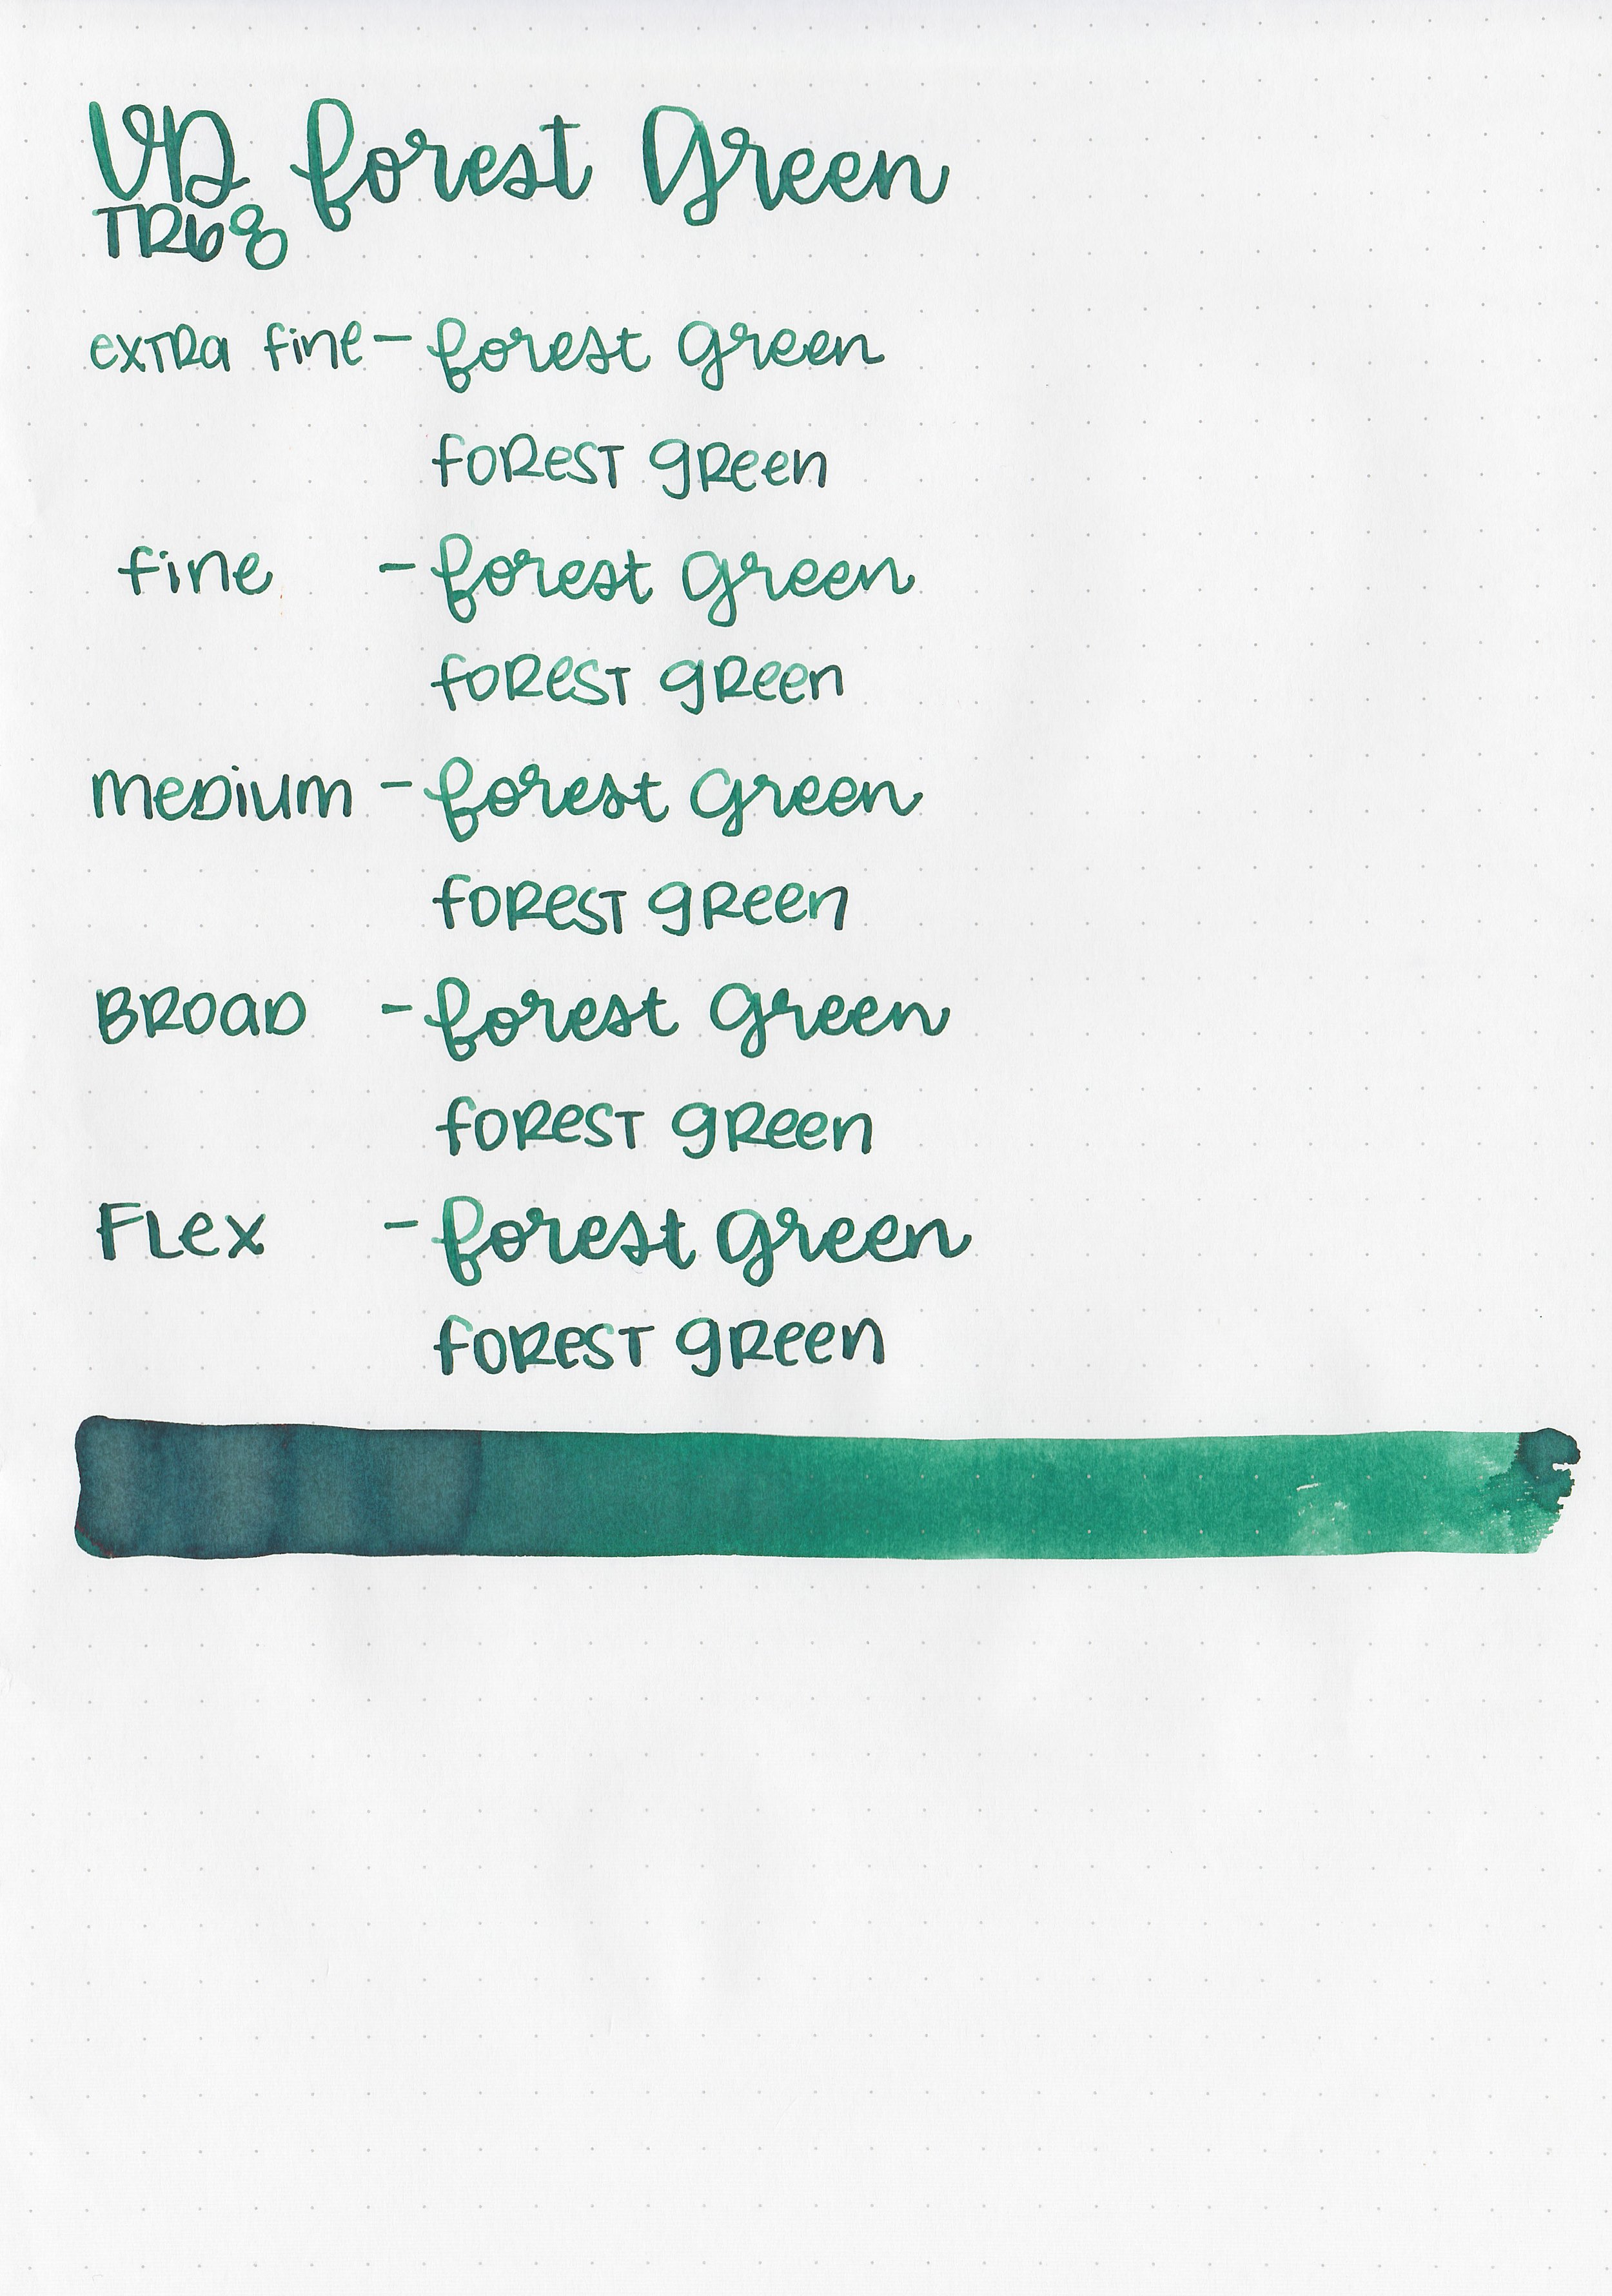 VD Forest Green
TR68
extra fine - forest green
forest green
fine - forest green
forest green
medium - forest green
forest green
Broad - forest green
forest green
Flex - forest green
forest green